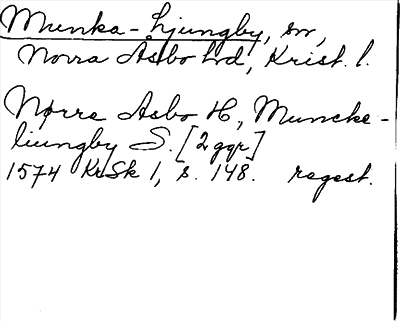 Munka-Ljungby, sn,
Norra Åsbo hd, Krist. l.
Nørre Asbo H, Muncke-
liungby S. [2 ggr]
1574 KrSk 1, s. 148. regest.